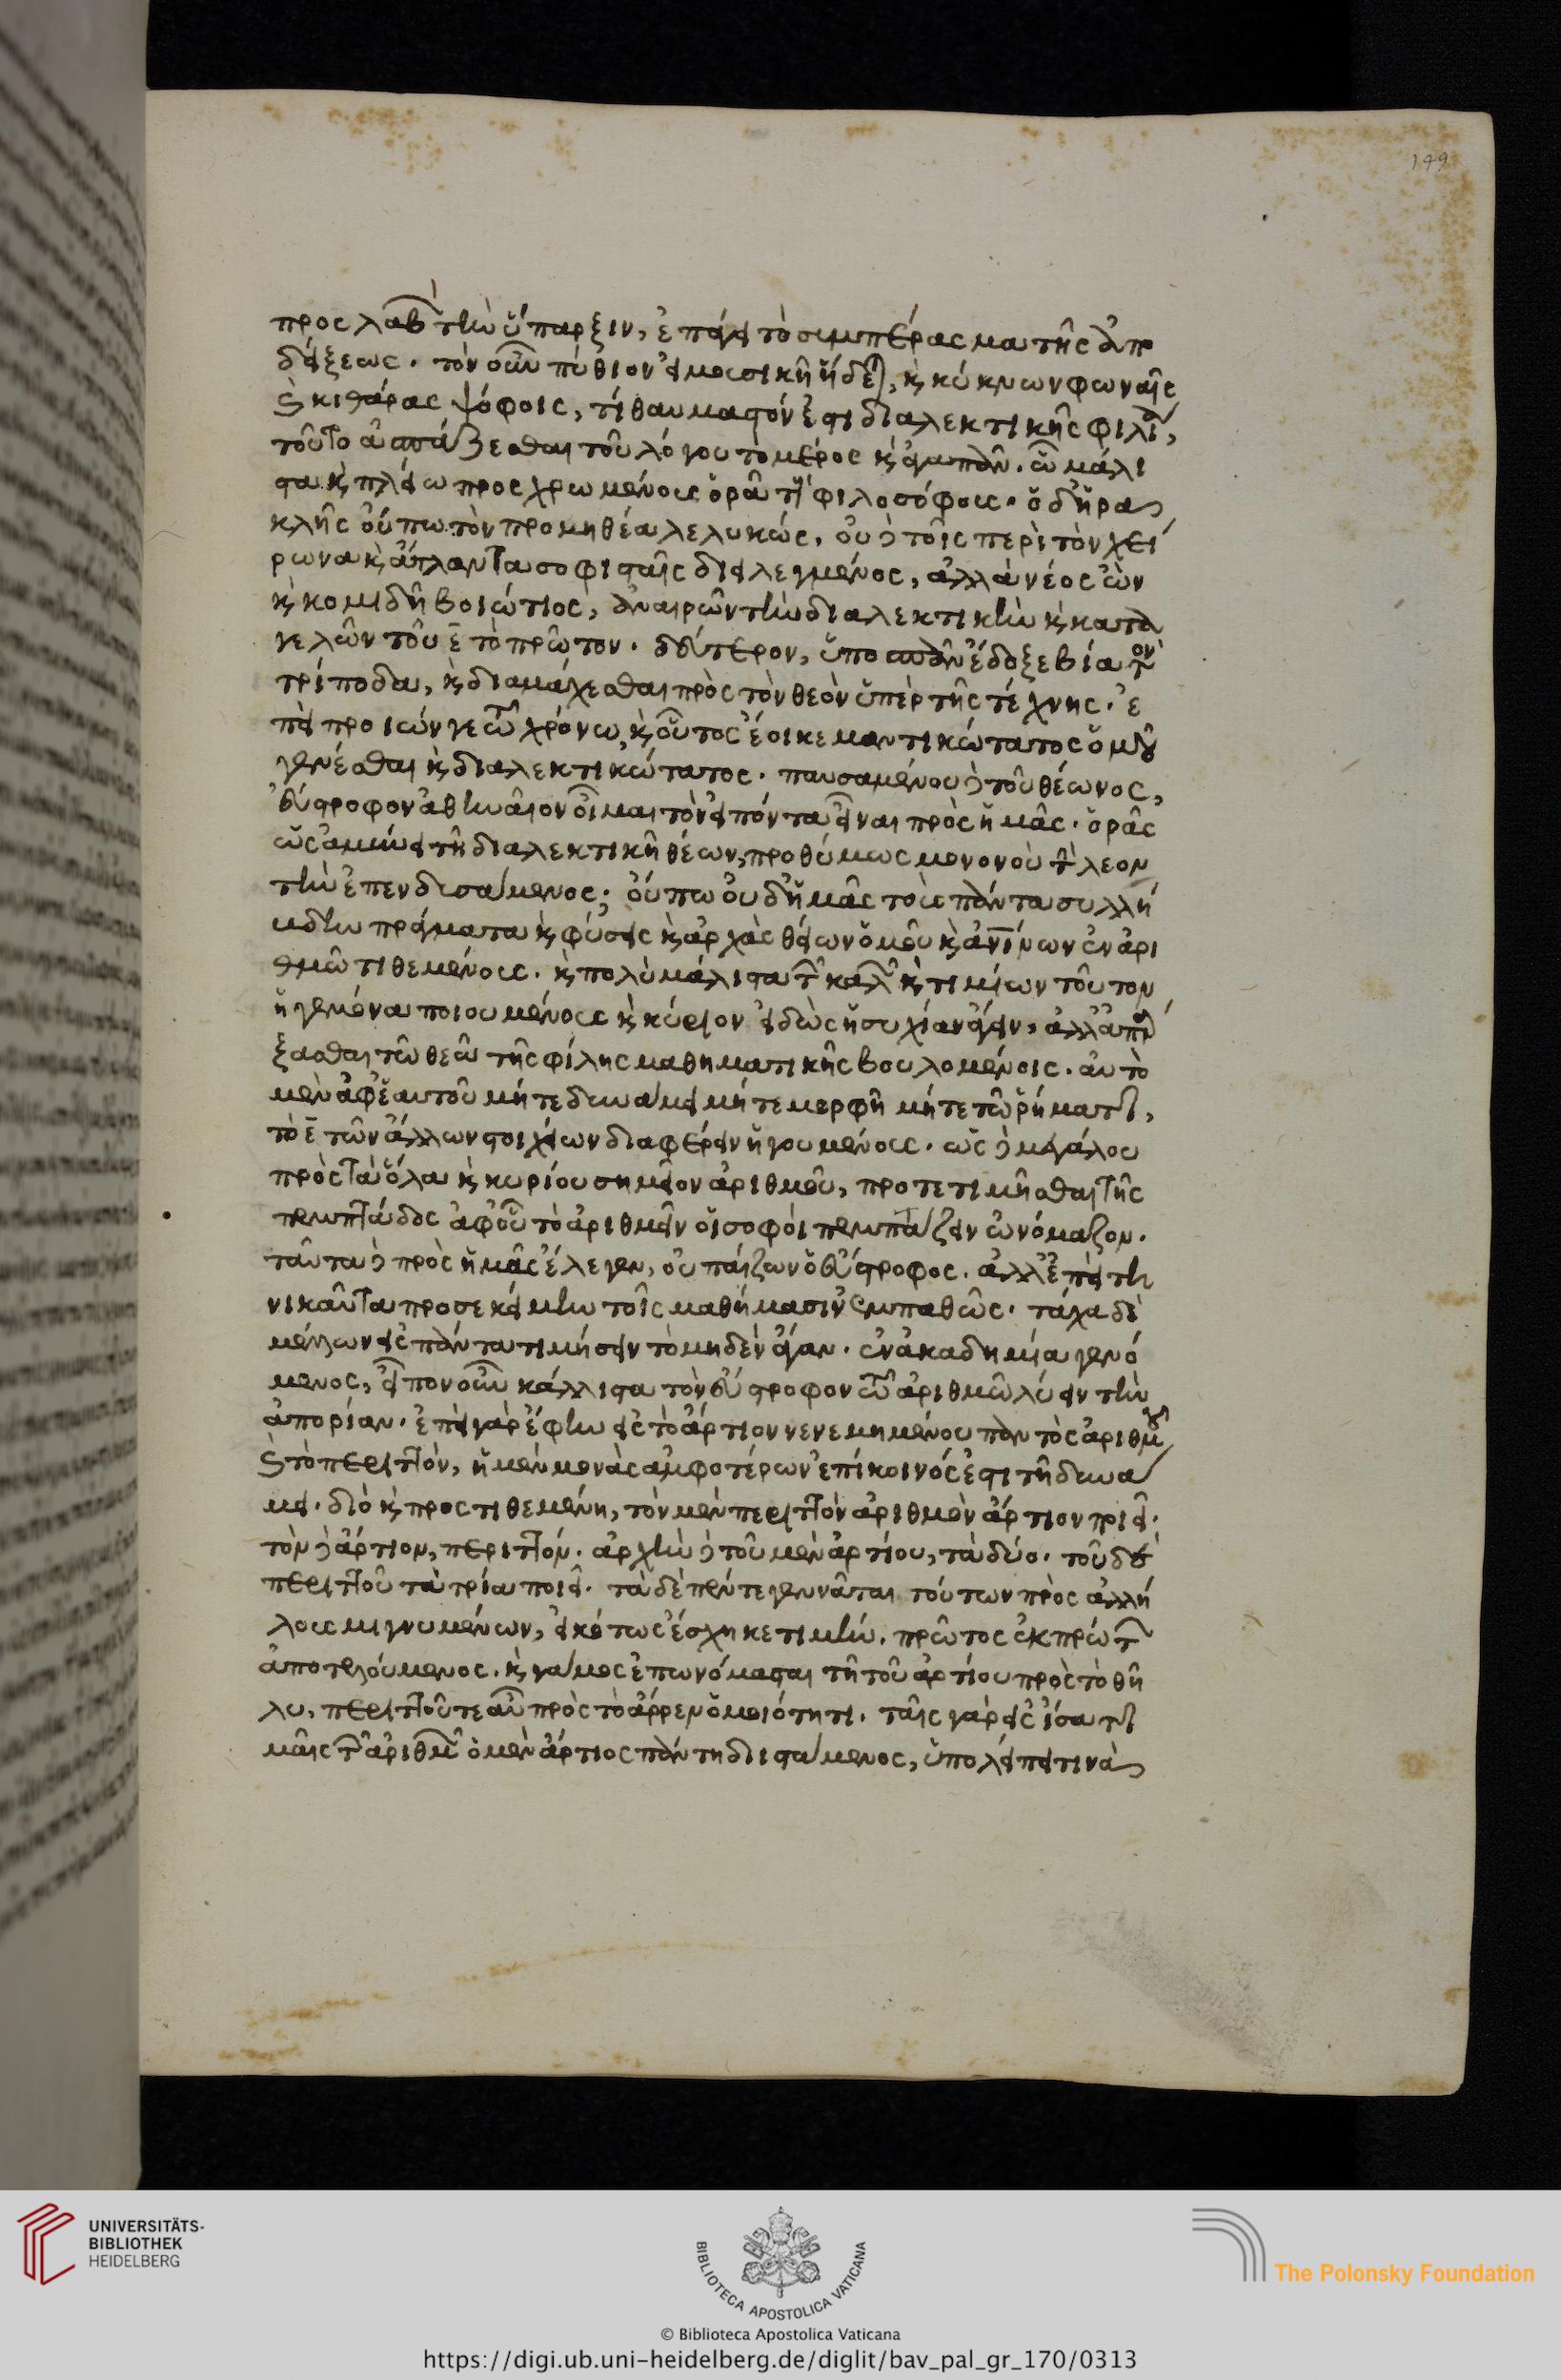 149
προς λαβ τὴν ὕπαρξιν, ἐπάγει τὸ συμπέρασμα τῆς ἀπο
δείξεως. τὸν οὖν πύθιον εἰ μουσικῇ ἥδεται, κ κύκνων φωναῖς
κ κιθάρας ψόφοις, τί θαυμαστόν ἐστι διαλεκτικῆς φιλία,
τοῦτο ἀσπάζεσθαι τοῦ λόγου τὸ μέρος κ ἀγαπᾶν. ᾧ μάλι
στα κ πλείω προςχρωμένους ὁρᾷ τοὺς φιλοσόφους. ὁ δ' ἡρα
κλῆς οὔπω τὸν προμηθέα λελυκώς, οὐδὲ τοῖς περὶ τὸν χεί
ρωνα κ ἄτλαντα σοφισταῖς διειλεγμένος, ἀλλὰ νέος ὢν
κ κομιδῆ βοιώτιος, ἀναιρῶν τὴν διαλεκτικὴν κ κατα
γελῶν τοῦ ε τὸ πρῶτον. δεύτερον, ὑποσπᾶν ἔδοξε βία τὸν
τρίποδα, κ διαμάχεσθαι πρὸς τὸν θεὸν ὑπὲρ τῆς τέχνης. ἐ
πεὶ προιών γε τῷ χρόνω, κ οὗτος ἔοικε μαντικώτατος ὁμοῦ
γενέσθαι κ διαλεκτικώτατος. παυσαμένου δὲ τοῦ θέωνος,
εὔστροφον ἀθηναῖον οἶμαι τὸν εἰπόντα εἶναι πρὸς ἡμᾶς. ὁρᾷς
ὡς ἀμύνει τῇ διαλεκτικῇ θέων, προθύμως μονονοὺ τ λεον
τὴν ἐπενδυσάμενος; οὔπω οὐδ' ἡμᾶς τοὺς πάντα συλλή
βδην πράγματα κ φύσεις κ ἀρχὰς θείων ὁμοῦ κ ἀνίνων ἐν ἀρι
θμῷ τιθεμένους. κ πολὺ μάλιστα τῶν καλῶν κ τιμίων τοῦτον
ἡγεμόνα ποιουμένους κ κύριον εἰδὼς ἡσυχίαν ἄγειν, ἀλλ' ἀπάρ
ξασθαι τῷ θεῷ τῆς φίλης μαθηματικῆς βουλομένοις. αὐτὸ
μὲν ἀφ' ἑαυτοῦ μήτε δυνάμει μήτε μορφῇ μήτε τῷ ῥήματι,
τὸ ε τῶν ἄλλων στοιχείων διαφέρειν ἡγουμένους. ὡς δὲ μεγάλου
πρὸς τὰ ὅλα κ κυρίου σημεῖον ἀριθμοῦ, προτετιμῆσθαι τῆς
πεμπτάδος ἀφ' οὗ τὸ ἀριθμεῖν οἱ σοφοὶ πεμπάζειν ὠνόμαζον.
ταῦτα δὲ πρὸς ἡμᾶς ἔλεγεν, οὐ παίζων ὁ εὔστροφος. ἀλλ' ἐπεὶ τη
νικαῦτα προσεκείμην τοῖς μαθήμασιν ἐμπαθῶς. τάχα δὲ
μέλλων εἰς πάντα τιμήσειν τὸ μηδὲν ἄγαν. ἐν ἀκαδημία γενό
μενος, εἶπον οὖν κάλλιστα τὸν εὔστροφον τῷ ἀριθμῷ λύειν τὴν
ἀπορίαν. ἐπεὶ γὰρ ἔφην εἰς τὸ ἄρτιον νενεμημένου παντὸς ἀριθμοῦ
κ τὸ περιττόν, ἡ μὲν μονὰς ἀμφοτέρων ἐπίκοινός ἐστι τῇ δυνά
μει. διὸ κ προςτιθεμένη, τὸν μὲν περιττὸν ἀριθμὸν ἄρτιον ποιεῖ.
τὸν δὲ ἄρτιον, περιττόν. ἀρχὴν δὲ τοῦ μὲν ἀρτίου, τὰ δύο. τοῦ δὲ
περιττοῦ τὰ τρία ποιεῖ. τὰ δὲ πέντε γεννᾶται τούτων πρὸς ἀλλή
λους μιγνυμένων, εἰκότως ἔσχηκε τιμήν. πρῶτος ἐκ πρώτων
ἀποτελούμενος. κ γάμος ἐπωνόμασται τῇ τοῦ ἀρτίου πρὸς τὸ θῆ
λυ, περιττοῦ τε αὖ πρὸς τὸ ἄρρεν ὁμοιότητι. ταῖς γὰρ εἰς ἴσα τι
μαῖς τῶν ἀριθμῶν ὁ μὲν ἄρτιος πάντη διιστάμενος, ὑπολείπει τινὰ
UNIVERSITÄTS-
BIBLIOTHEK
HEIDELBERG
BIBLIOTECA APOSTOLICA VATICANA
The Polonsky Foundation
© Biblioteca Apostolica Vaticana
https://digi.ub.uni-heidelberg.de/diglit/bav_pal_gr_170/0313